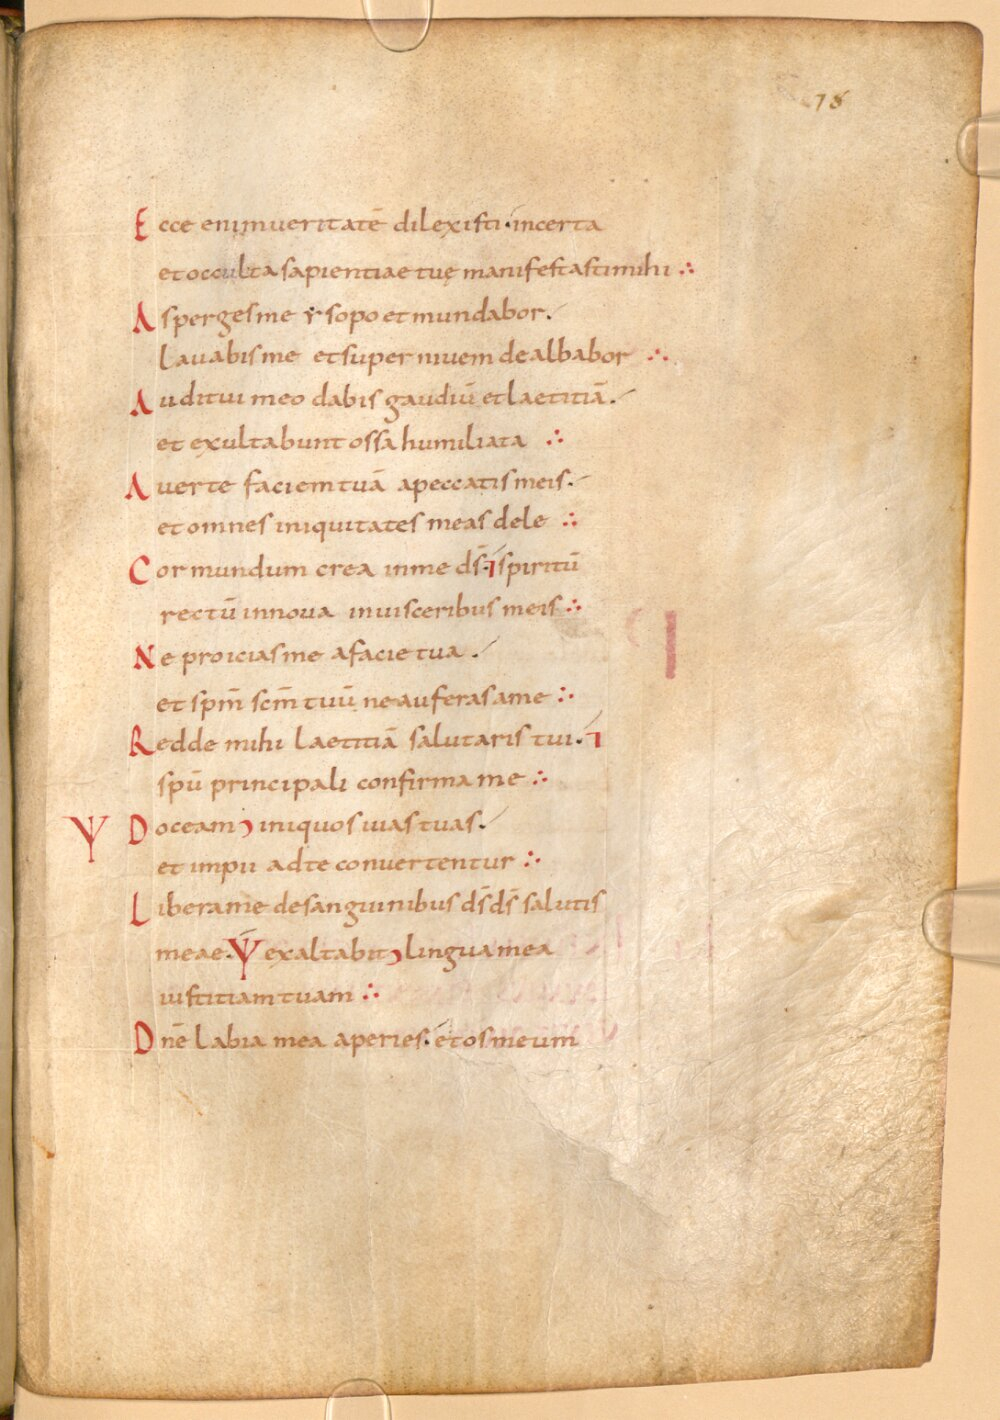 78
Ecce enim veritatē dilexisti · incerta
et occulta sapientiae tuę manifestasti mihi ∴
Asperges me ysopo et mundabor.
Lavabis me et super nivem dealbabor ∴
Auditui meo dabis gaudiū et laetitiā.
et exultabunt ossa humiliata ∴
Averte faciem tuā a peccatis meis.
et omnes iniquitates meas dele ∴
Cor mundum crea in me d̄s · ⁊ spiritū
rectū innova in visceribus meis ∴
Ne proicias me a facie tua.
et spm̄ scm̄ tuū ne auferas a me ∴
Redde mihi laetitiā salutaris tui. ⁊
spū principali confirma me ∴
Ѱ Doceam iniquos vias tuas.
et impii ad te convertentur ∴
Libera me de sanguinibus d̄s d̄s salutis
meae. Ѱ exaltabit lingua mea
iustitiam tuam ∴
Dnē labia mea aperies. et os meūm